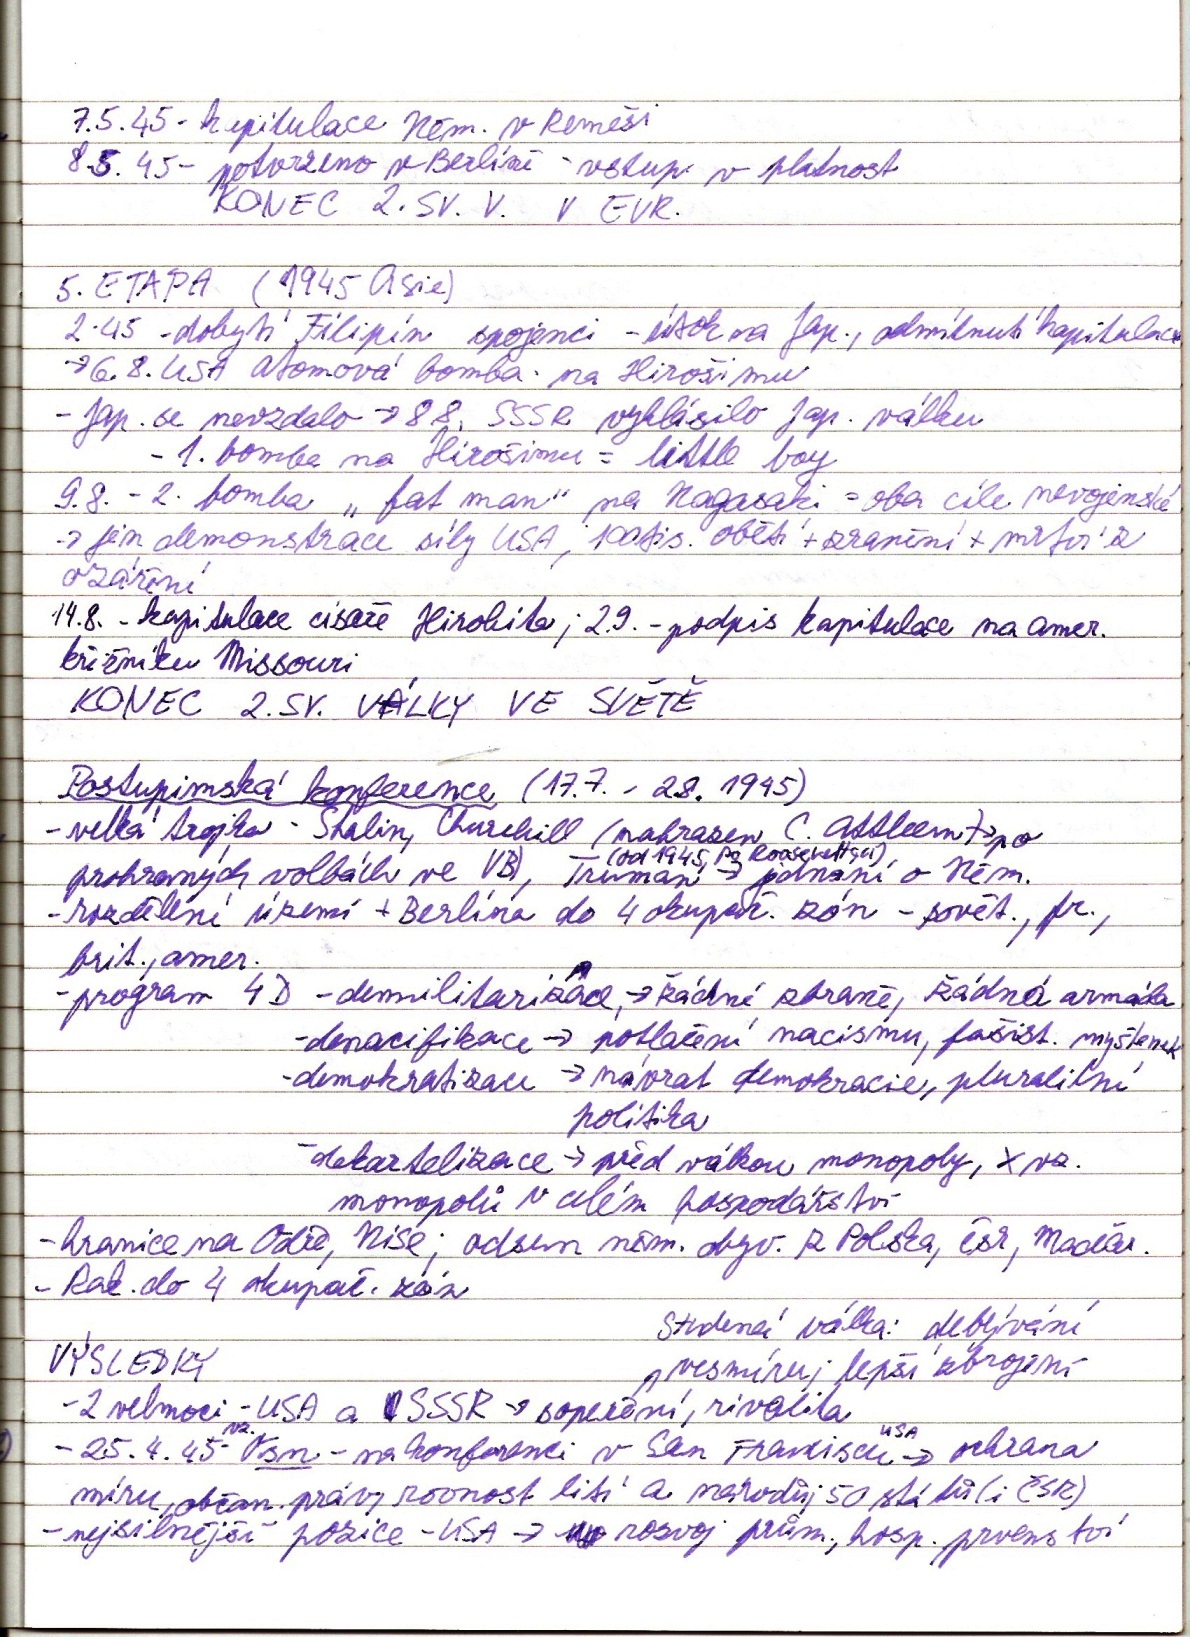 7.5.45 - kapitulace Něm. v Remeši
8.5.45 - potvrzeno v Berlíně - vstup. v platnost
KONEC 2. SV. V. V EVR.
5. ETAPA (1945 Asie)
2.45 - dobytí Filipín spojenci - útok na Jap., odmítnutí kapitulace
→ 6.8. USA atomová bomba na Hirošimu
- Jap. se nevzdalo → 8.8. SSSR vyhlásilo Jap. válku
- 1. bomba na Hirošimu = little boy
9.8. - 2. bomba „fat man" na Nagasaki = oba cíle nevojenské
→ jen demonstrace síly USA, 100tis. obětí + zranění + mrtví z
ozáření
14.8. - kapitulace císaře Hirohita; 2.9. - podpis kapitulace na amer.
křižníku Missouri
KONEC 2. SV. VÁLKY VE SVĚTĚ
Postupimská konference (17.7. - 2.8. 1945)
- velká trojka - Stalin, Churchill (nahrazen C. Attleem → po
(od 1945, po Rooseveltovi)
prohraných volbách ve VB), Truman → jednání o Něm.
- rozdělení území + Berlína do 4 okupač. zón - sovět., fr.,
brit., amer.
- program 4D - demilitarizace → žádné zbraně, žádná armáda
- denacifikace → potlačení nacismu, fašist. myšlenek
- demokratizace → návrat demokracie, pluralitní
politika
- dekartelizace → před válkou monopoly, x vz.
monopolů v celém hospodářství
- hranice na Odře, Nise; odsun něm. obyv. z Polska, ČSR, Maďar.
- Rak. do 4 okupač. zón
Studená válka: dobývání
VÝSLEDKY
vesmíru; lepší zbrojení
- 2 velmoci - USA a SSSR → soupeření, rivalita
- 25.4.45 - vz. OSN - na konferenci v San Franciscu USA → ochrana
míru, občan. práv, rovnost lidí a národů; 50 států (i ČSR)
- nejsilnější pozice - USA → rozvoj prům., hosp. prvenství